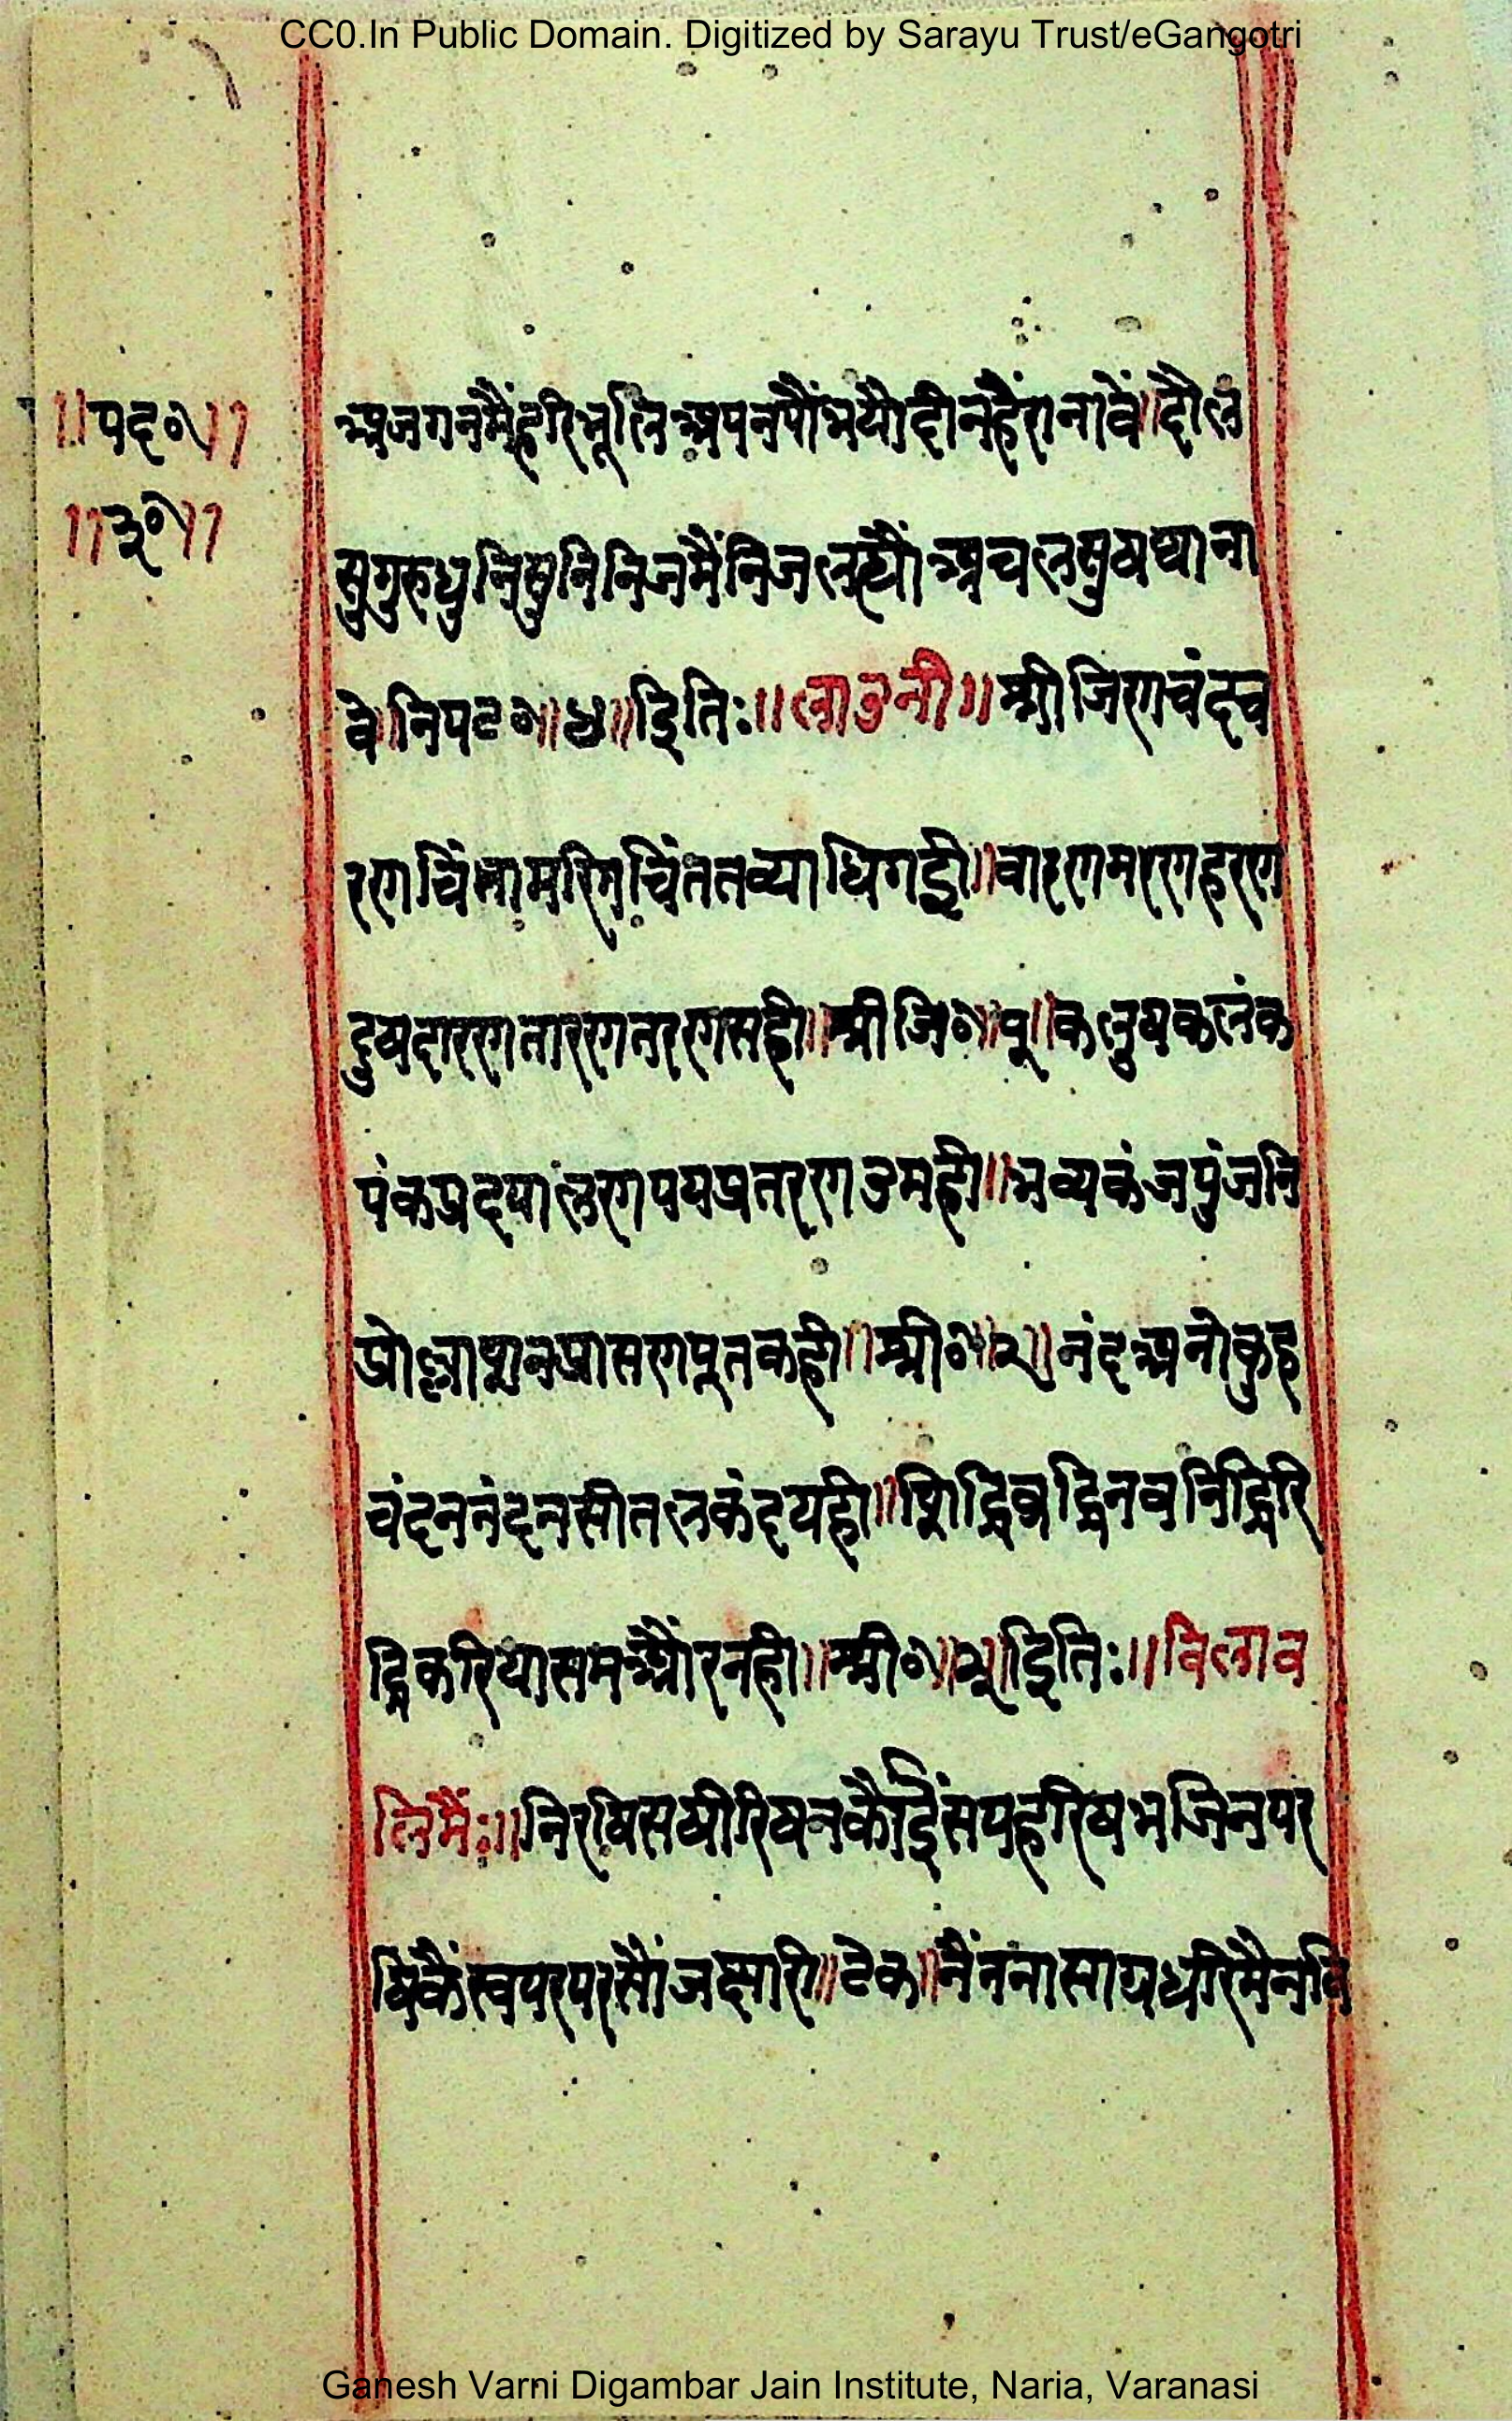 CC0.In Public Domain. Digitized by Sarayu Trust/eGangotri
॥पद०॥
॥३०॥
अजगनमैंहरिभूलिअपनपौंभयौदीनहैरानावें॥दौल
सुगुरुधुनिसुनिनिजमैंनिजलह्यौंअचलसुषथाना
वे॥निपट०॥४॥इतिः॥लाउनी॥श्रीजिणचंदच
रणचिंतामणिचिंततव्याधिगई॥वारणमरणहरण
दुषदारणतारणतरणसही॥श्रीजि०॥१॥कलुषकलंक
पंकप्रदषालणपयप्रतरणउमही॥भव्यकंजपुंजनि
नंदअनोकुह
चंदननंदनसीतलकंदयही॥
द्धिकरियासमऔरनही॥श्री०॥ इतिः॥विलाव
लिमैंः॥निरषिसषीरिषनकौईसंयहरिषभजिनपर
षिकैंस्वपरपरसौंजछारी॥टेक॥नैंननासाग्रधरिमैनवि
Ganesh Varni Digambar Jain Institute, Naria, Varanasi